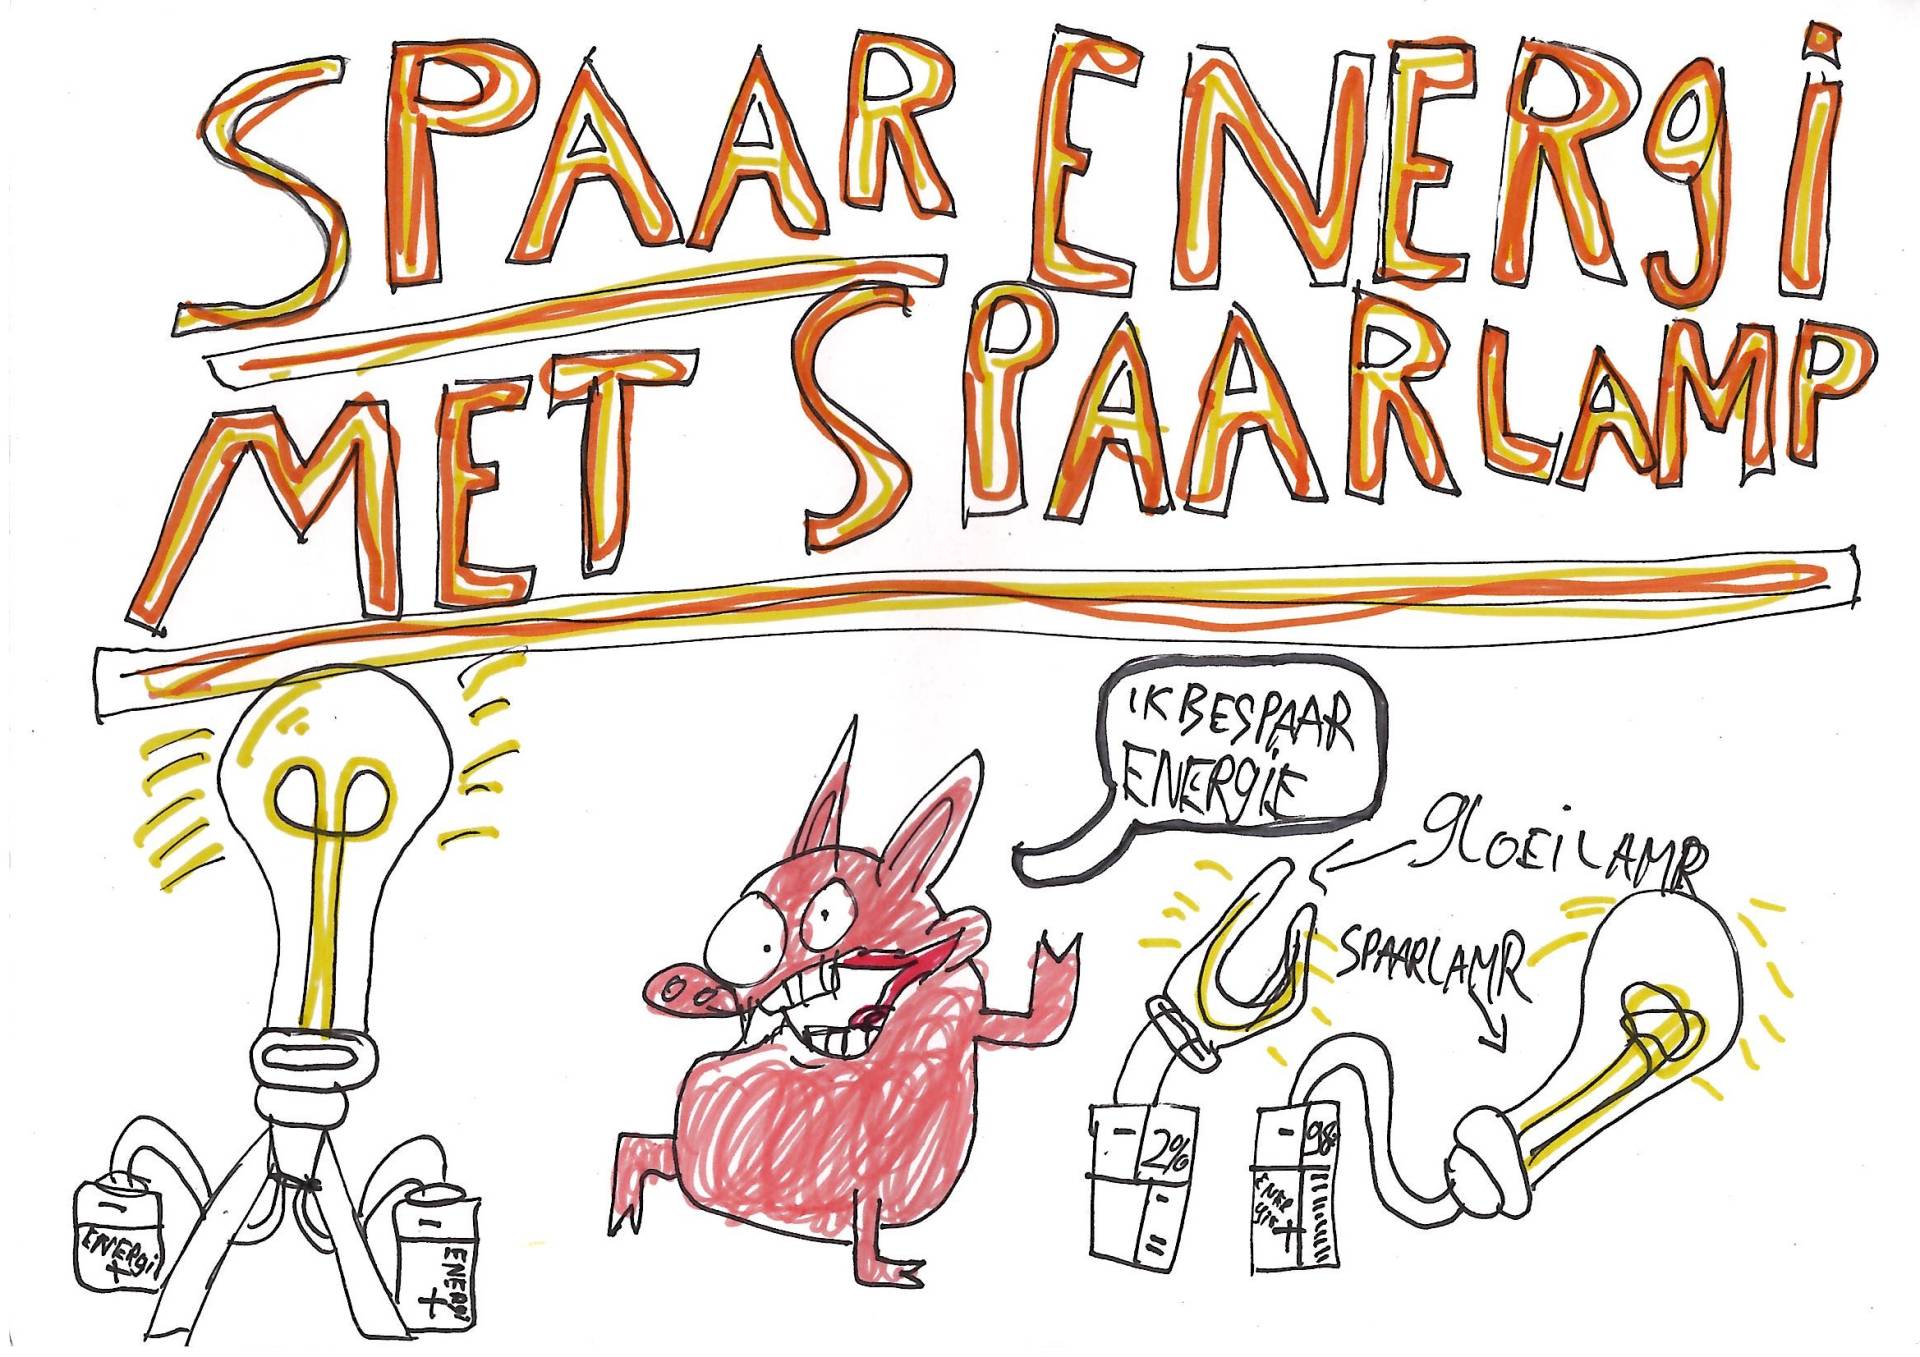 SPAAR ENERgi
MET SPAARLAMP
iK BESPAAR
ENERGiE
gLOEiLAMP
SPAARLAMP
2%
98%
ENER
giE
+
ENERgi
+
ENERgi
+